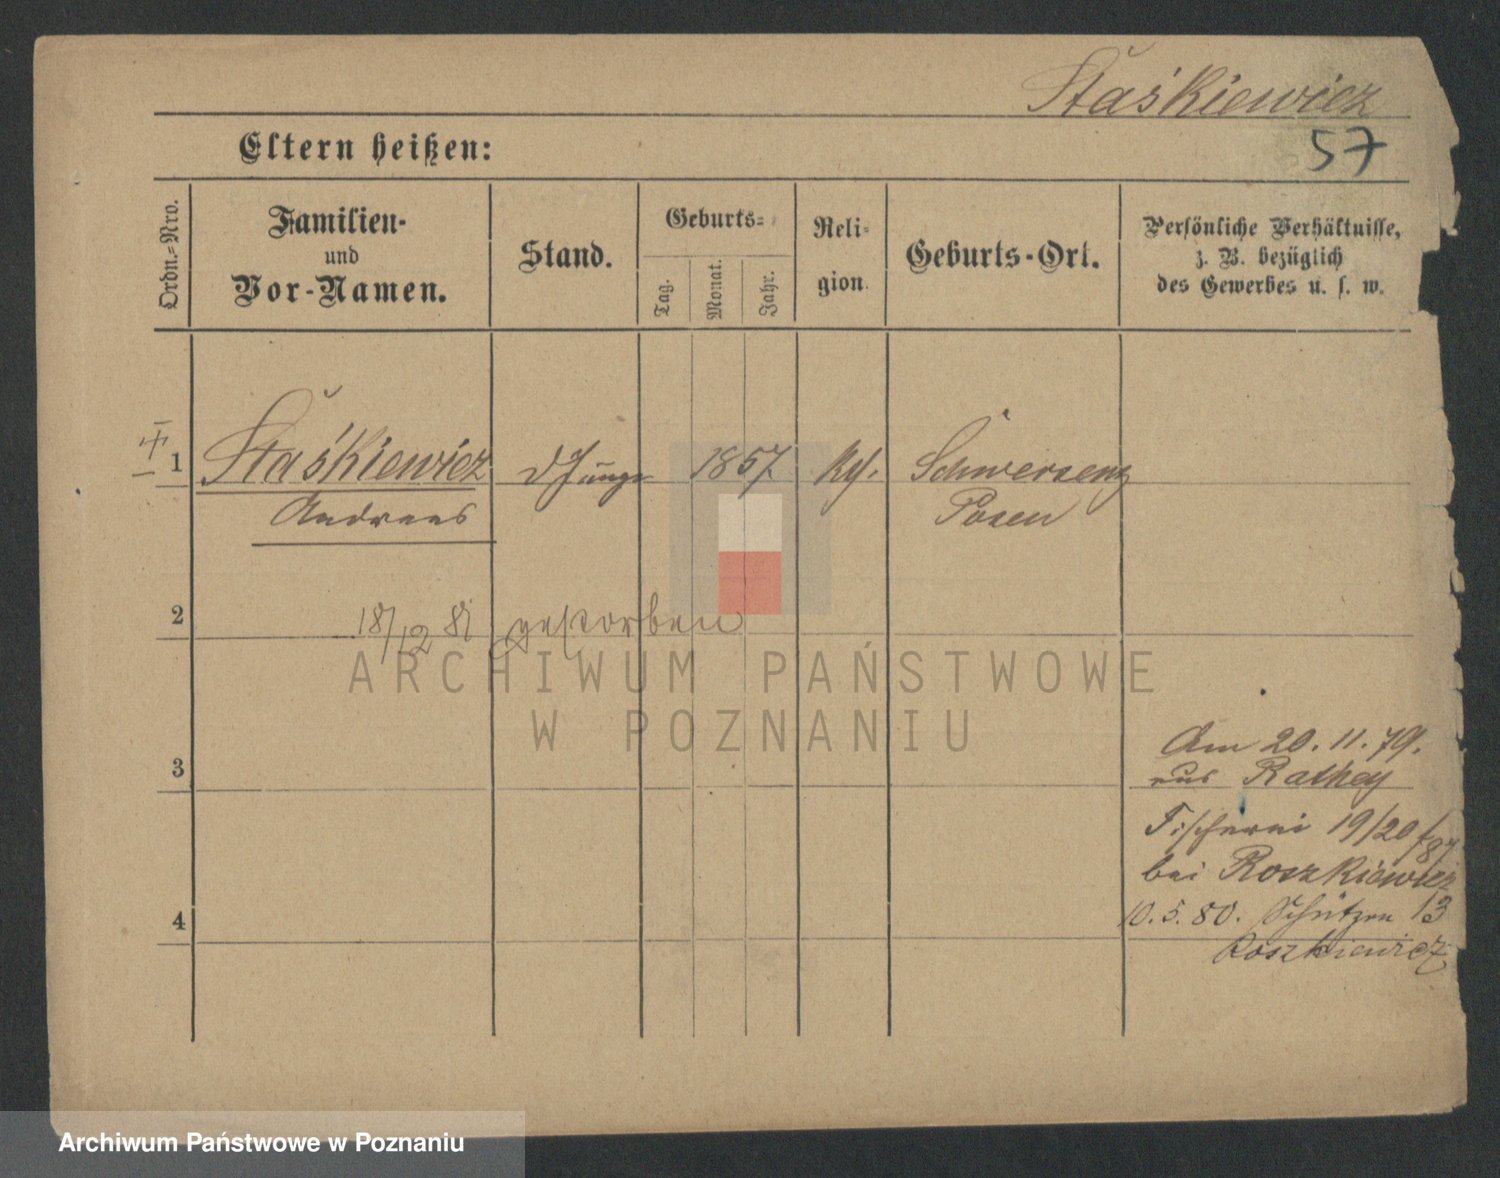 Staśkiewicz
57
Eltern heißen:
Ordn.-Nro.
Familien-
und
Vor-Namen.
Stand.
Geburts-
Tag.
Monat.
Jahr.
Reli-
gion.
Geburts-Ort.
Persönliche Verhältnisse,
z. B. bezüglich
des Gewerbes u. s. w.
1 Staśkiewicz 1857 Schwersenz
Andreas Posen
2 18/12 gestorben
ARCHIWUM PAŃSTWOWE
W POZNANIU
Am 20. 11. 79.
3 aus Rathey
Fischerei 19/20
bei Roszkiewicz
4 10. 5. 80. Schützen 13
Roszkiewicz
Archiwum Państwowe w Poznaniu